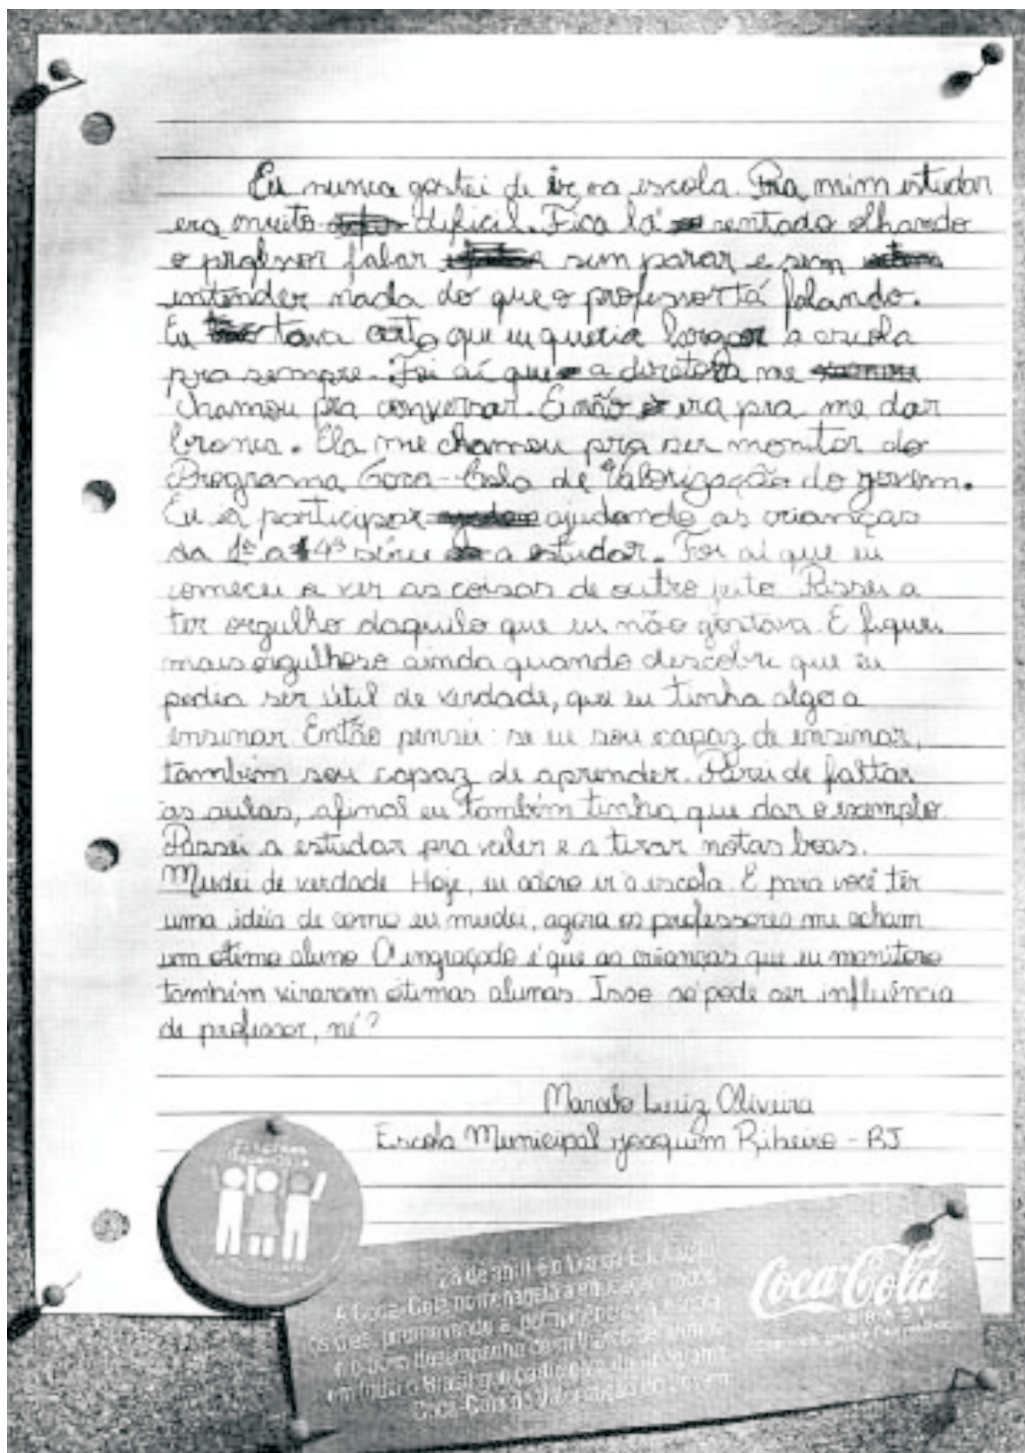 Eu nunca gostei de ir na escola. Pra mim estudar
era muito difícil. Fica lá sentado olhando
o professor falar sem parar e sem
entender nada do que o professor tá falando.
Eu tava certo que eu queria largar a escola
pra sempre. Foi aí que a diretora me
chamou pra conversar. E não era pra me dar
bronca. Ela me chamou pra ser monitor do
Programa Coca-Cola de Valorização do yovem.
Eu ia participar ajudando as crianças
da 1ª a 4ª série a estudar. Foi aí que eu
comecei a ver as coisas de outro jeito. Passei a
ter orgulho daquilo que eu não gostava. E fiquei
mais orgulhoso ainda quando descobri que eu
podia ser útil de verdade, que eu tinha algo a
ensinar. Então pensei: se eu sou capaz de ensinar,
também sou capaz de aprender. Parei de faltar
às aulas, afinal eu também tinha que dar o exemplo.
Passei a estudar pra valer e a tirar notas boas.
Mudei de verdade. Hoje, eu adoro ir à escola. E para você ter
uma idéia de como eu mudei, agora os professores me acham
um ótimo aluno. O engraçado é que as crianças que eu monitoro
também viraram ótimas alunas. Isso só pode ser influência
de professor, né?
Luiz Oliveira
Escola Municipal Joaquim Ribeiro - RJ
28 de abril é o Dia da Educação.
A Coca-Cola homenageia a educação
promovendo a permanência na escola
e o bom desempenho de milhares de
em todo o Brasil que participam do Programa
Coca-Cola de Valorização do Jovem
Coca-Cola